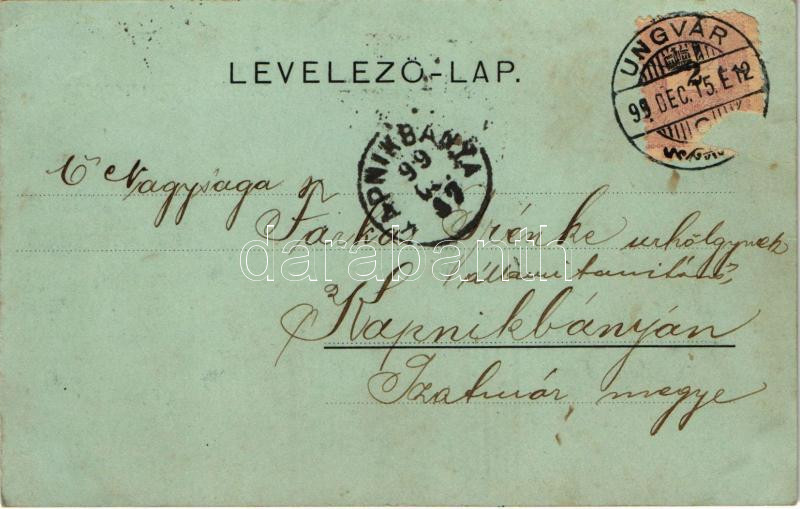 LEVELEZŐ-LAP.
UNGVÁR
99 DEC. 15. É 12
KAPNIKBÁNYA
99
17
Ő Nagysága
Farkas Irénke urhölgynek
államitanitónő
Kapnikbányán
Szatmár megye
darabanth